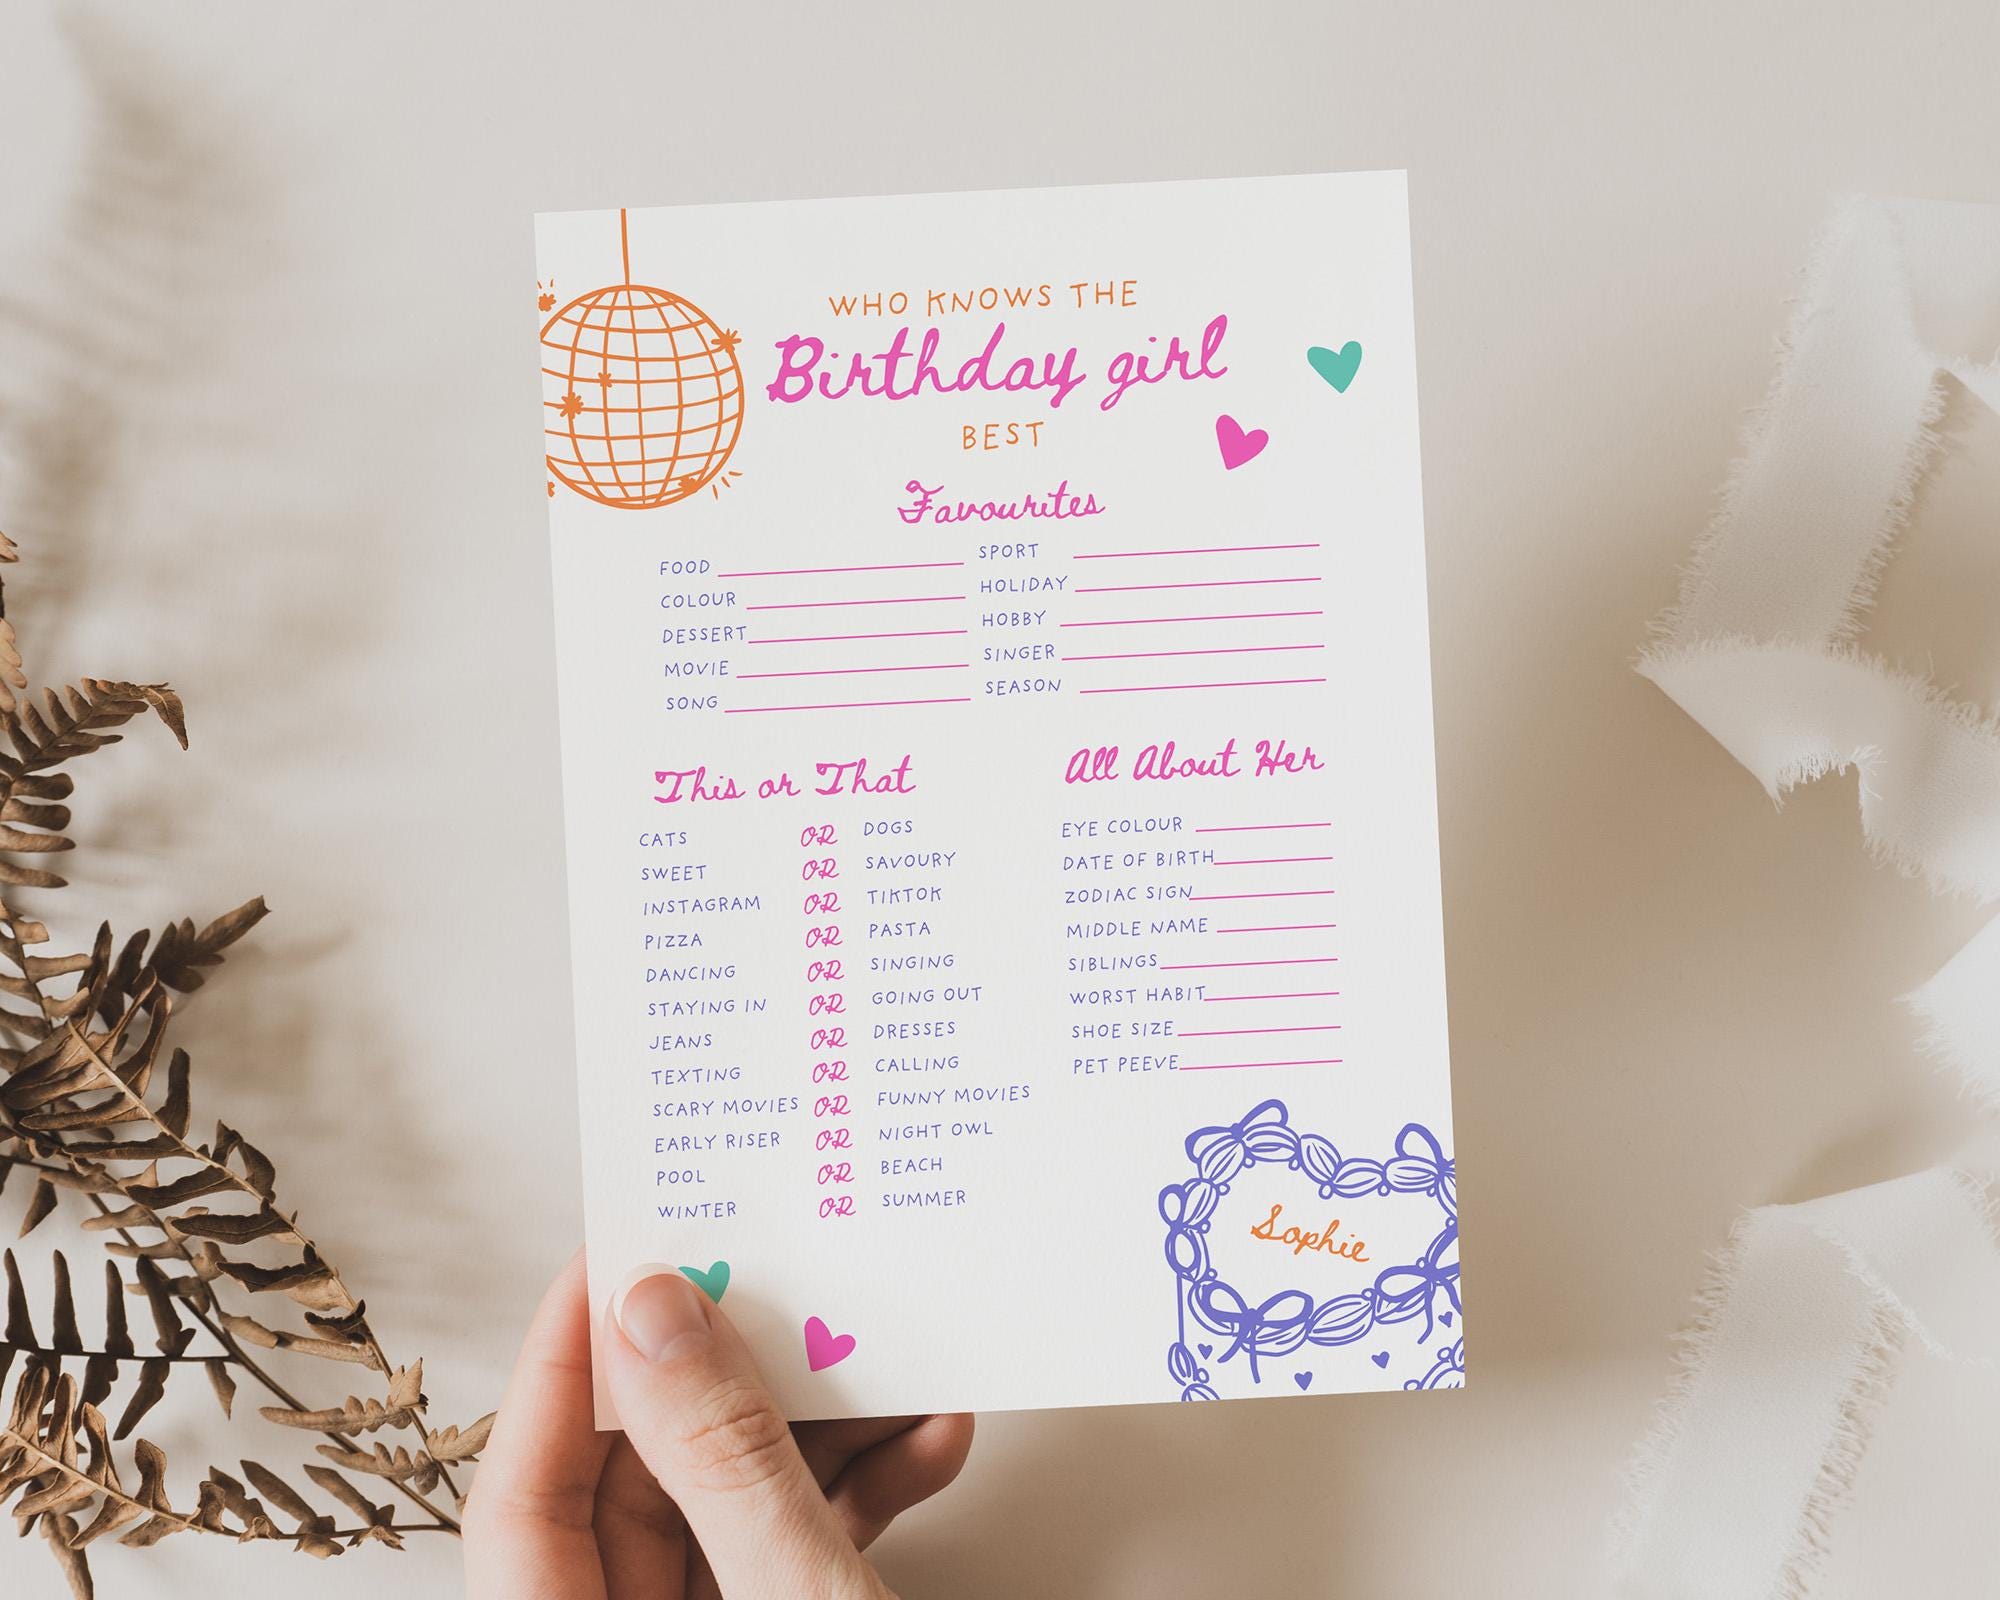 WHO KNOWS THE
Birthday girl
BEST
Favourites
FOOD
COLOUR
DESSERT
MOVIE
SONG
SPORT
HOLIDAY
HOBBY
SINGER
SEASON
This or That
CATS OR DOGS
SWEET OR SAVOURY
INSTAGRAM OR TIKTOK
PIZZA OR PASTA
DANCING OR SINGING
STAYING IN OR GOING OUT
JEANS OR DRESSES
TEXTING OR CALLING
SCARY MOVIES OR FUNNY MOVIES
EARLY RISER OR NIGHT OWL
POOL OR BEACH
WINTER OR SUMMER
All About Her
EYE COLOUR
DATE OF BIRTH
ZODIAC SIGN
MIDDLE NAME
SIBLINGS
WORST HABIT
SHOE SIZE
PET PEEVE
Sophie